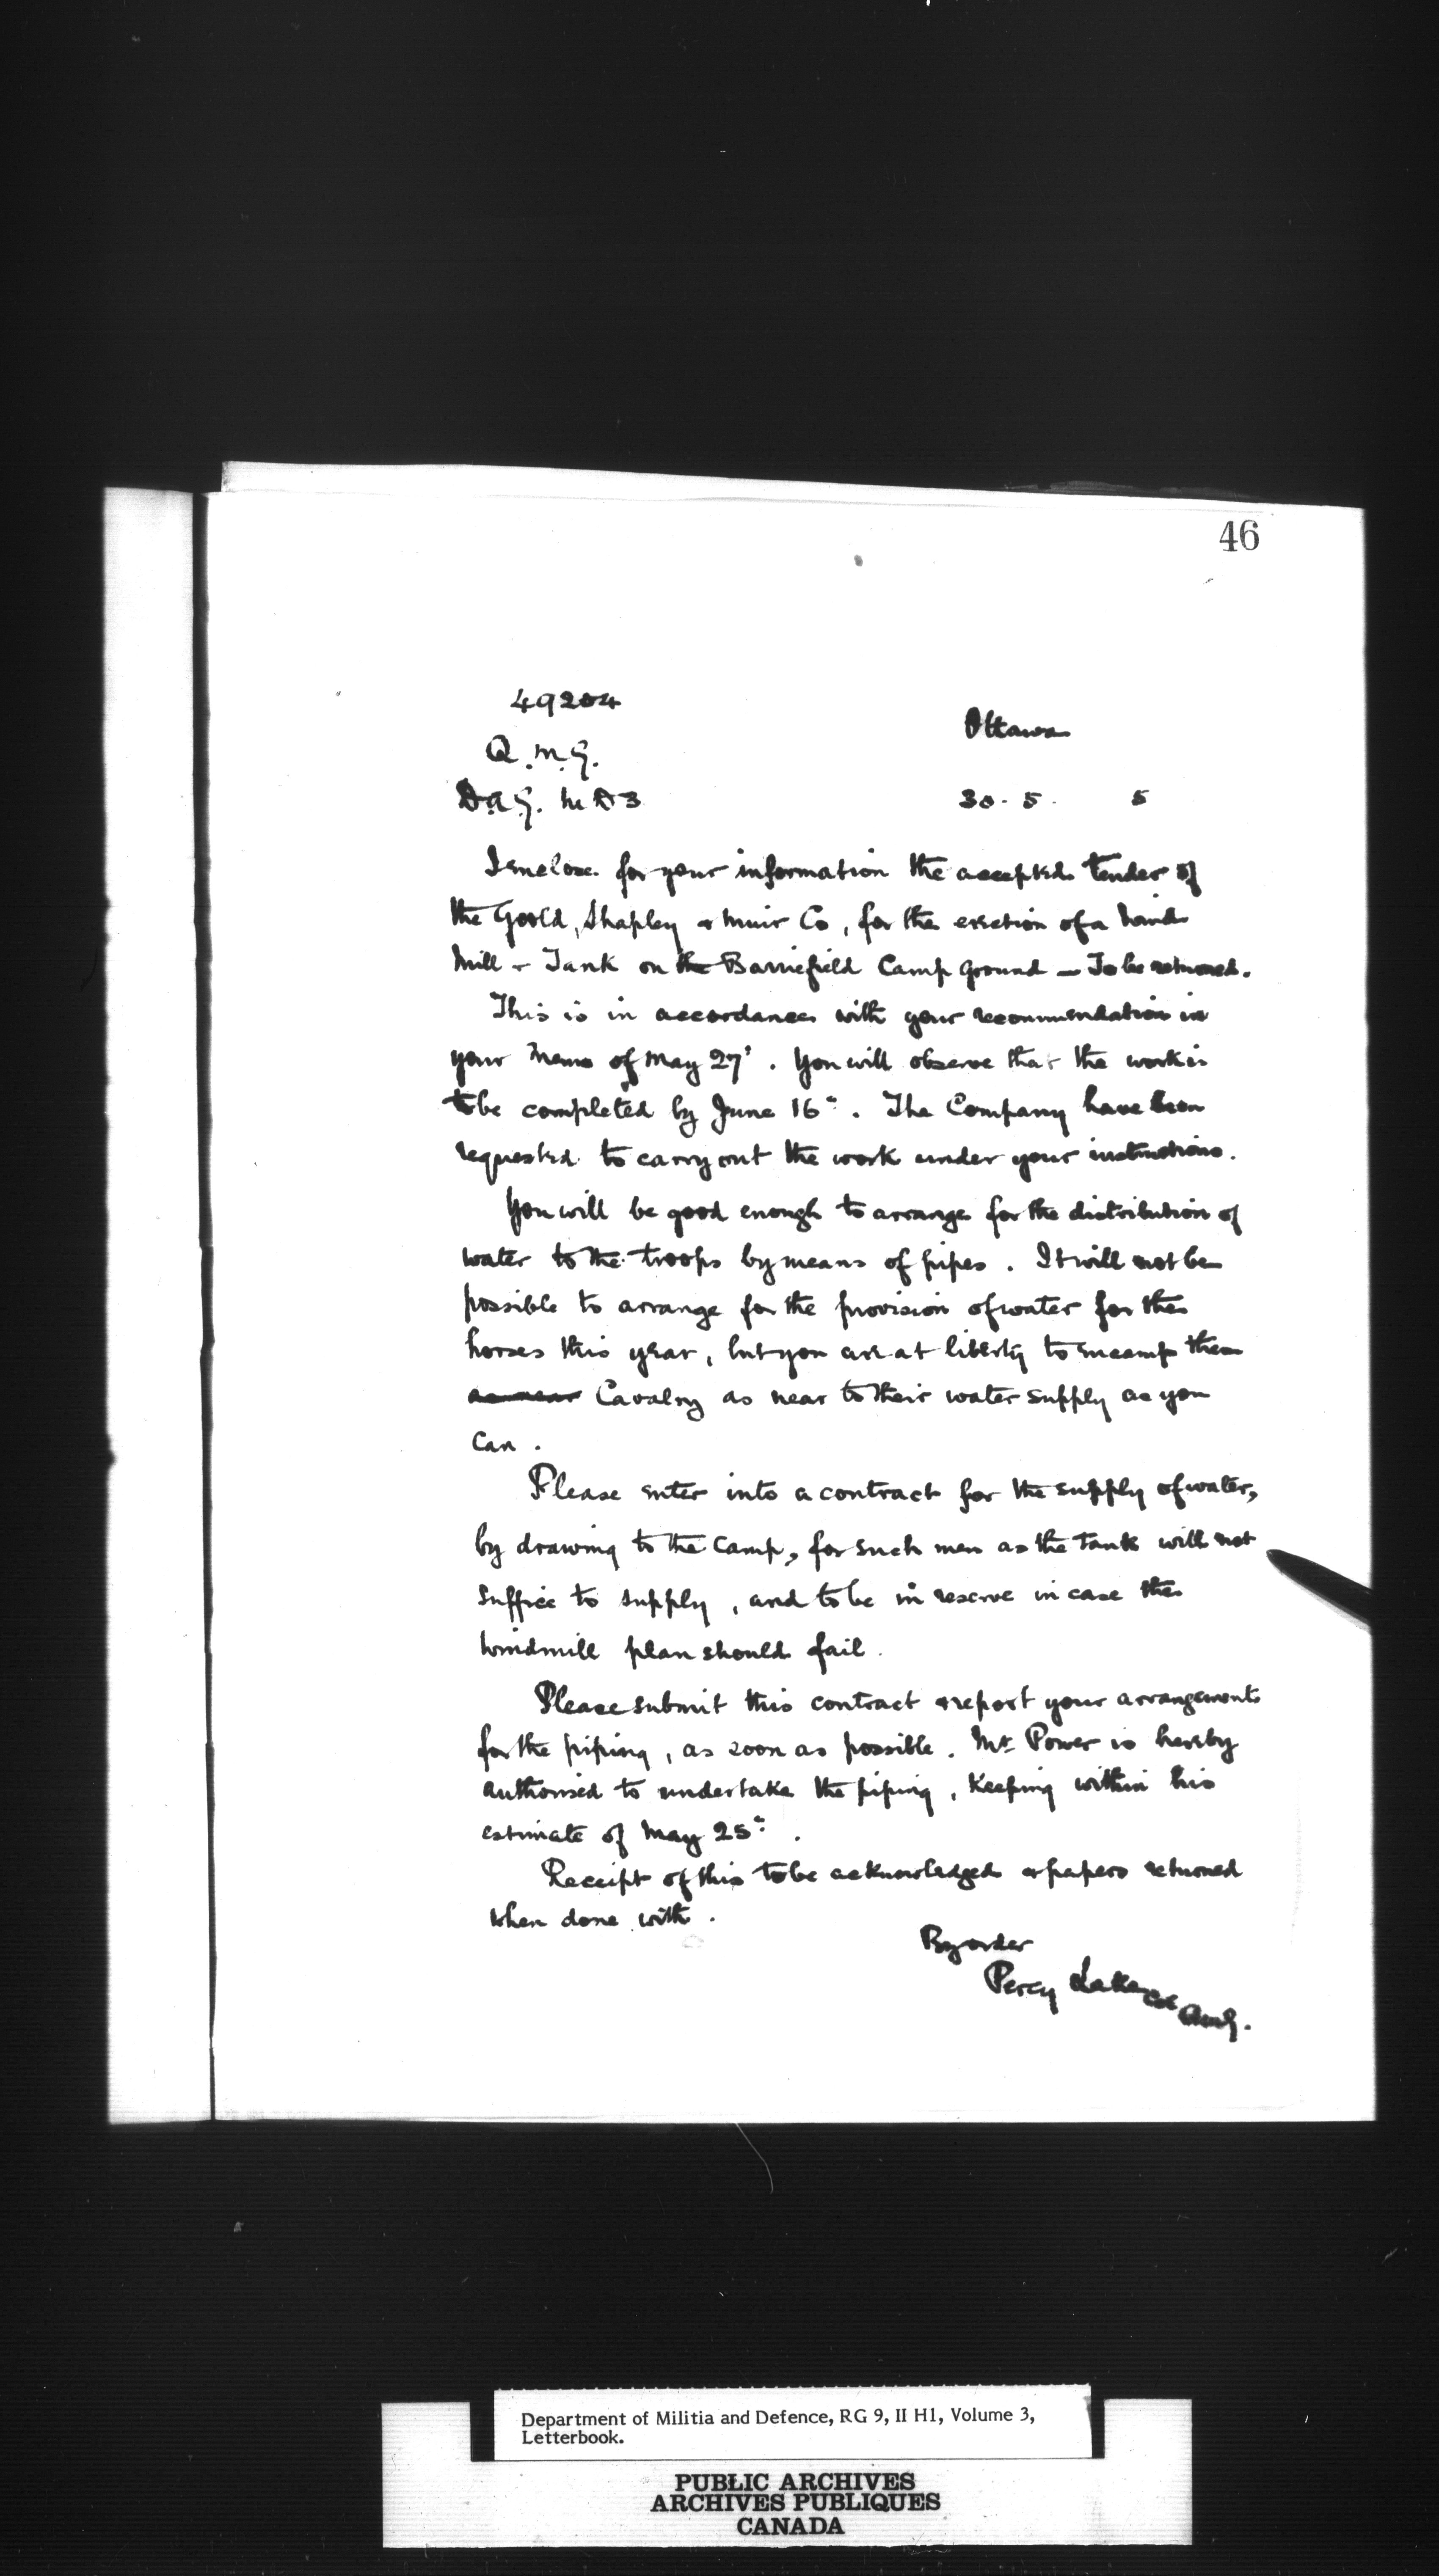 46
49204
Ottawa
Q.M.G.
D.A.G. M D 3 30. 5. 5
I enclose for your information the accepted tender of
the Goold, Shapley & Muir Co, for the erection of a Wind
Mill & Tank on the Barriefield Camp ground — To be returned.
This is in accordance with your recommendation in
your Memo of May 27th. You will observe that the work is
to be completed by June 16th. The Company have been
requested to carry out the work under your instructions.
You will be good enough to arrange for the distribution of
water to the troops by means of pipes. It will not be
possible to arrange for the provision of water for the
horses this year, but you are at liberty to encamp the
as near Cavalry as near to their water supply as you
can.
Please enter into a contract for the supply of water,
by drawing to the Camp, for such men as the tank will not
suffice to supply, and to be in reserve in case the
windmill plan should fail.
Please submit this contract & report your arrangements
for the piping, as soon as possible. Mr Power is hereby
authorised to undertake the piping, keeping within his
estimate of May 25th.
Receipt of this to be acknowledged & papers returned
when done with.
By order
Percy Lake Col
QMG.
Department of Militia and Defence, RG 9, II H1, Volume 3,
Letterbook.
PUBLIC ARCHIVES
ARCHIVES PUBLIQUES
CANADA